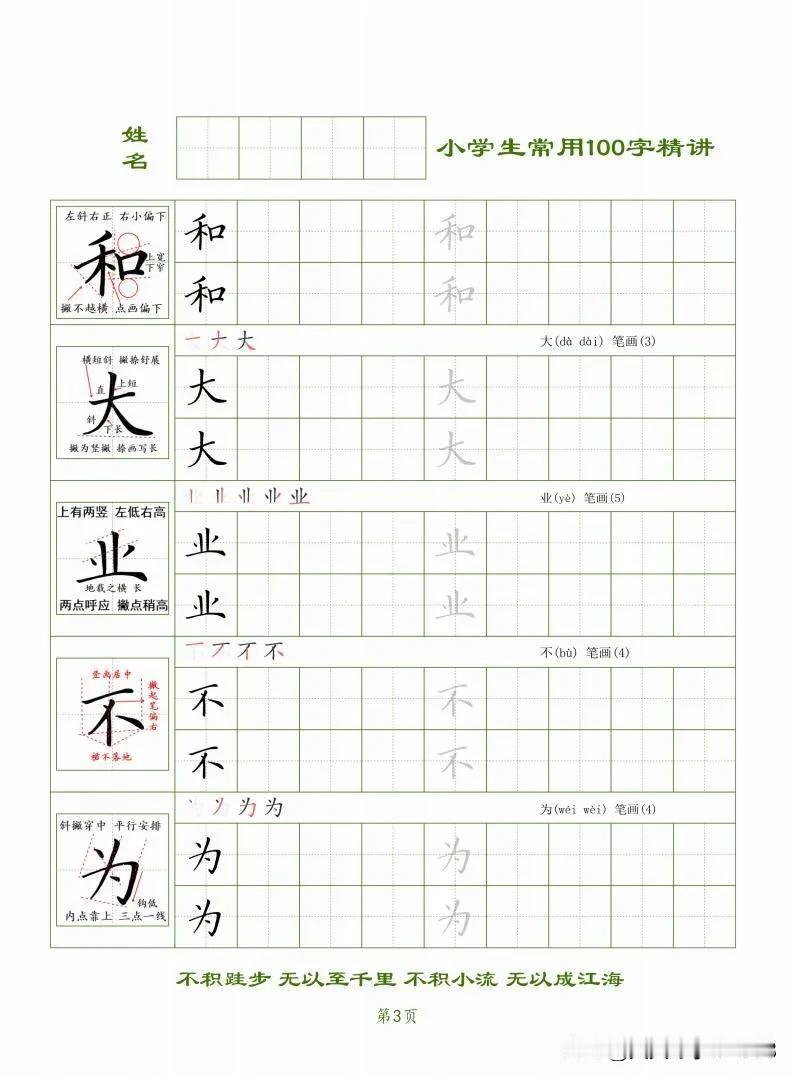 姓名
小学生常用100字精讲
左斜右正 右小偏下
和
上宽下窄
撇不越横 点画偏下
和 和
和 和
大(dà dài) 笔画(3)
横短斜 撇捺舒展
直 上短
大
斜 下长
撇为竖撇 捺画写长
大 大
大 大
业(yè) 笔画(5)
上有两竖 左低右高
业
地载之横 长
两点呼应 撇点稍高
业 业
业 业
不(bù) 笔画(4)
竖画居中
不
撇起笔偏右
捺不落地
不 不
不 不
为(wéi wèi) 笔画(4)
斜撇穿中 平行安排
为
钩低
内点靠上 三点一线
为 为
为 为
不积跬步 无以至千里 不积小流 无以成江海
第3页